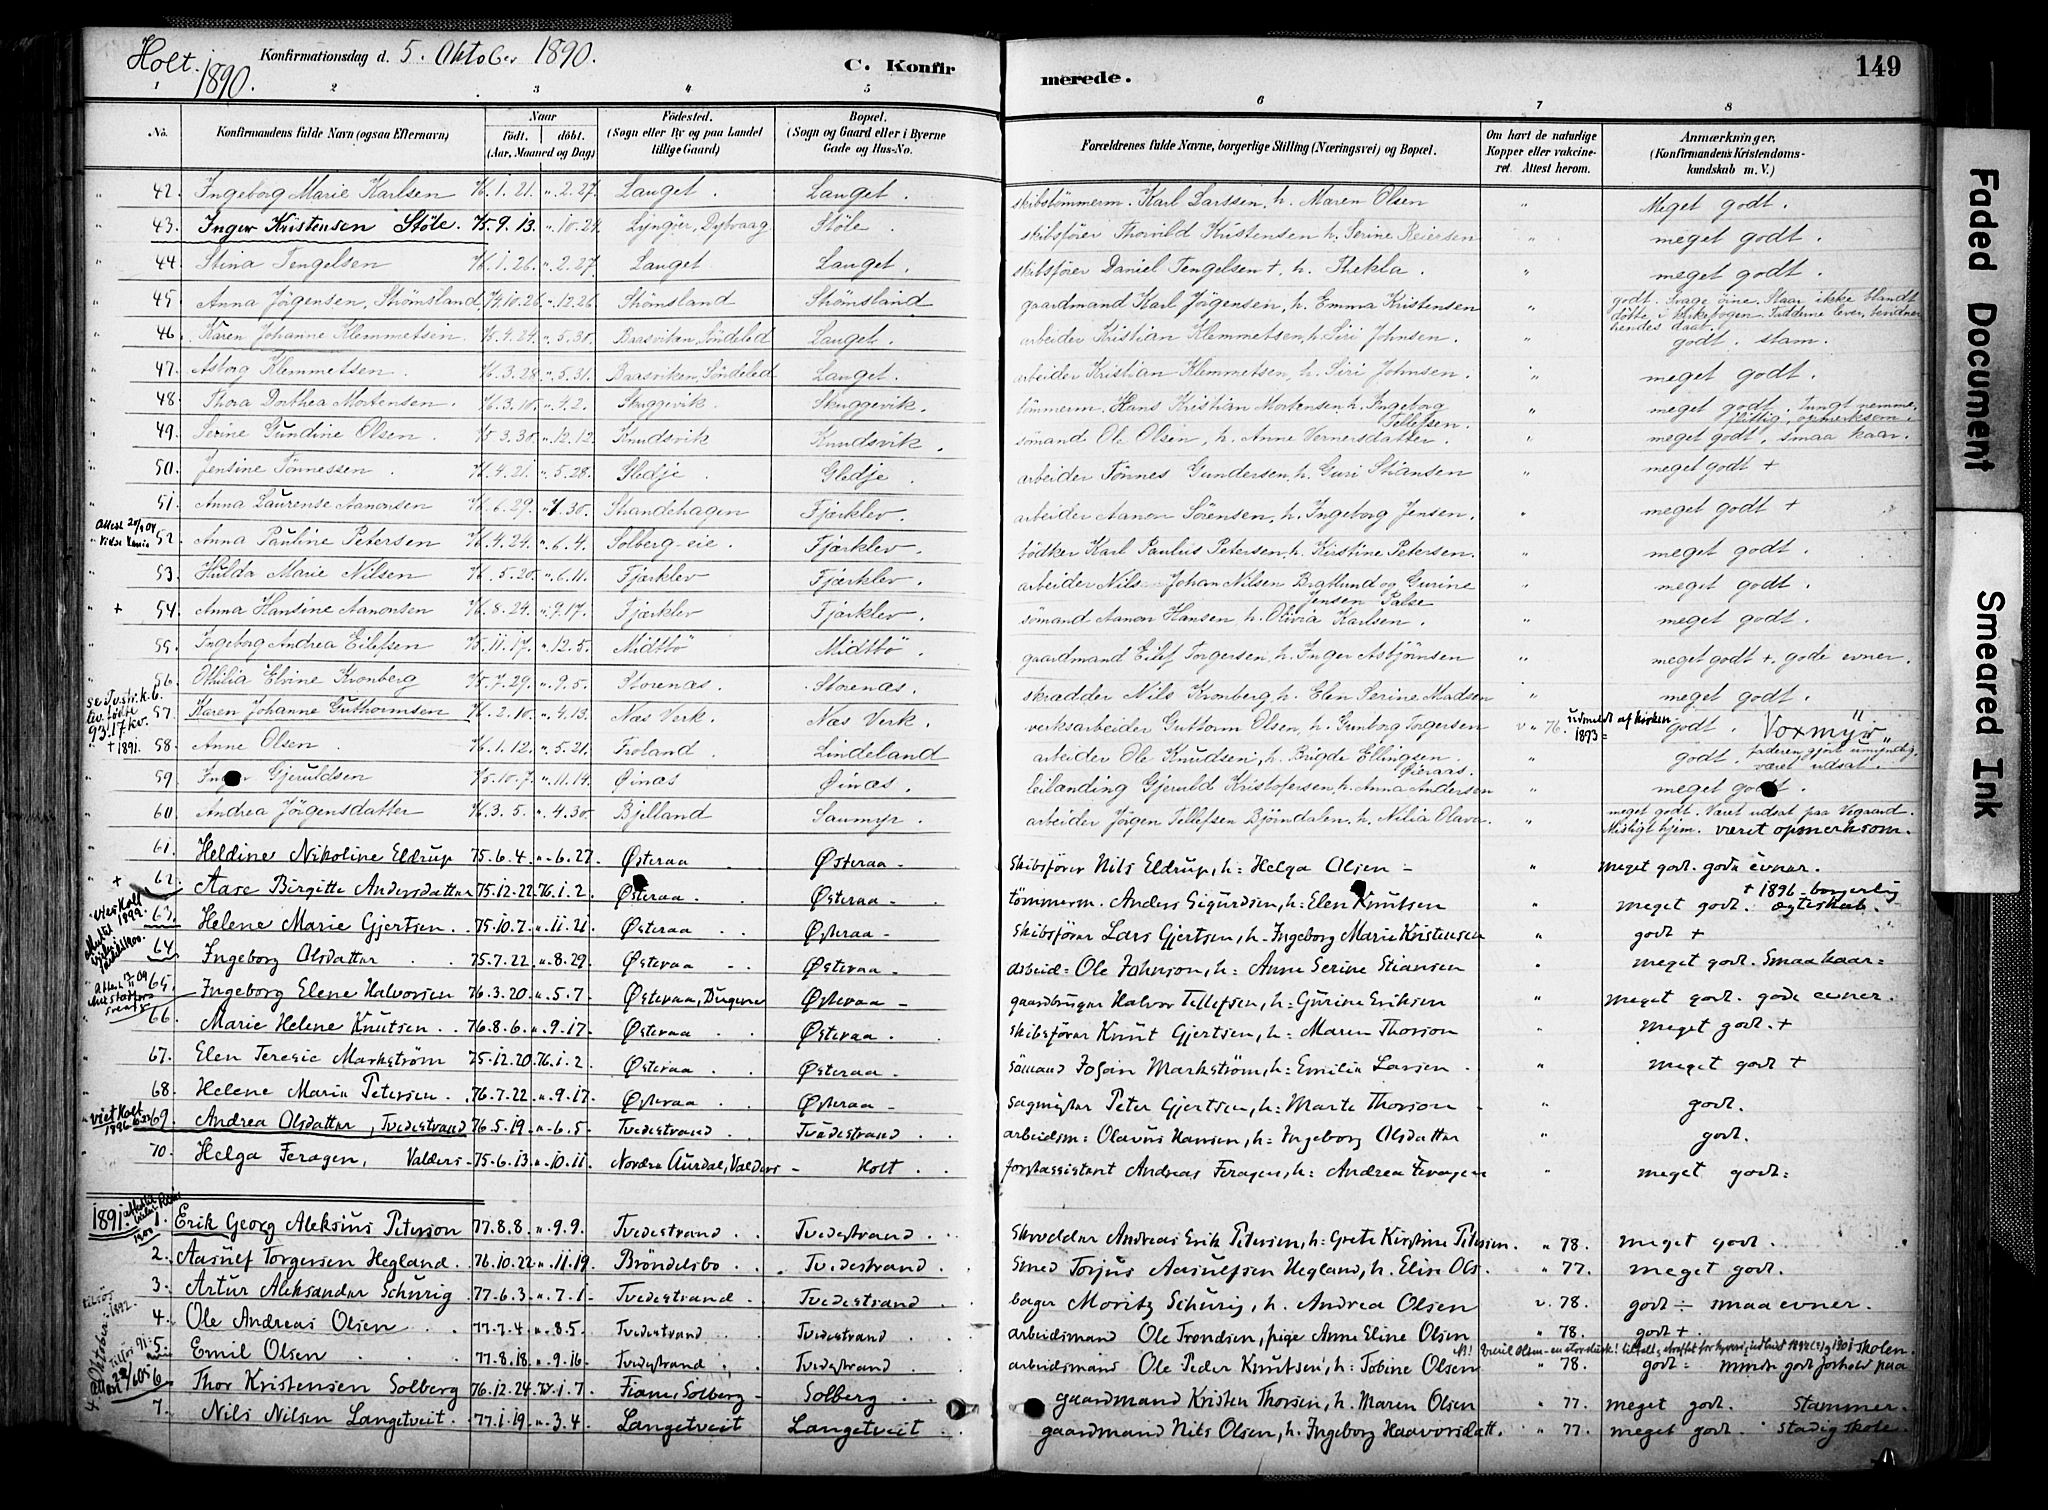 Holt. 1890. Konfirmationsdag d. 5. Oktober 1890. C. Konfirmerede. 149
1 2 3 4 5 6 7 8
No. Konfirmandens fulde Navn (ogsaa Efternavn) Naar født. døbt. (Aar, Maaned og Dag) Fødested. (Sogn eller By og paa Landet tillige Gaard) Bopæl. (Sogn og Gaard eller i Byerne Gade og Hus-No. Forældrenes fulde Navne, borgerlige Stilling (Næringsvei) og Bopæl. Om havt de naturlige Kopper eller vaccineret. Attest herom. Anmærkninger, (Konfirmandens Kristendomskundskab m. V.)
42. Ingeborg Marie Karlsen 76.1.21. " 2.27. Lauget. Lauget. skibstömmerm. Karl Larssen, h. Maren Olsen " Meget godt.
43. Inger Kristensen Støle. 75.9.13. " 10.24. Lyngör, Dybvaag Støle. skibsfører Thorvild Kristensen h. Serine Reiersen " meget godt.
44. Stina Tengelsen 76.1.26. " 2.27. Lauget Lauget. skibsfører Daniel Tengelsen +, h. Thekla. " meget godt.
45. Anna Jörgensen, Strömsland 74.10.26. " 12.26. Strömsland Strömsland gaardmand Karl Jörgensen, h. Emma Kristensen " godt. Svage öine. Staar ikke blandt döbte i kirkebogen. Fadderne lever, bevidner hendes daab.
46. Karen Johanne Klemmetsen. 76.4.24. " 5.30. Baasviken, Söndeled Lauget. arbeider Kristian Klemmetsen, h. Siri Johnsen. " godt. stam.
47. Asborg Klemmetsen. 76.3.28. " 5.31. Baasviken, Söndeled Lauget. arbeider Kristian Klemmetsen, h. Siri Johnsen. " meget godt.
48. Thora Dorthea Mortensen. 76.3.10. " 4.2. Skuggevik. Skuggevik. tömmerm. Hans Kristian Mortensen h. Ingeborg Tellefsen. " meget godt. Tungt nemme, flittig, opmerksom.
49. Serine Gundine Olsen. 75.3.30. " 12.12. Knudsvik Knudsvik. sömand Ole Olsen, h. Anne Vernersdatter. " meget godt, smaa kaar.
50. Jensine Tönnessen. 76.4.21. " 5.28. Gledje. Gledje. arbeider Tönnes Gundersen, h. Guri Stiansen " meget godt +
51. Anna Laurense Aanonsen 76.6.29. " 7.30. Strandehagen Fjærklev. arbeider Aanon Sörensen, h. Ingeborg Jensen. " meget godt +
52. Anna Pauline Petersen 76.4.24. " 6.4. Solberg-eie. Fjærklev. bödker Karl Paulus Petersen, h. Kirstine Petersen. " meget godt.
53. Hulda Marie Nilsen 76.5.20. " 6.11. Fjærklev Fjærklev. arbeider Nils Johan Nilsen Bratlund og Gurine Jensen Palse " meget godt.
+ 54. Anna Hansine Aanonsen 76.8.24. " 9.17. Fjærklev Fjærklev. sömand Aanon Hansen h. Olivia Karlsen. " meget godt.
55. Ingeborg Andrea Eilefsen 75.11.17. " 12.5. Midtbö Midtbö. gaardmand Eilef Torgersen, h. Inger Asbjönsen " meget godt +. gode evner.
56. Othilia Elvine Kronberg 75.7.29. " 9.5. Storenæs. Storenæs. skrædder Nils Kronberg h. Elen Serine Madsen " meget godt.
57. Karen Johanne Guthormsen 76.2.10. " 4.13. Næs Verk. Næs Verk. verksarbeider Guttorm Olsen, h. Gunborg Torgersen v " 76. udmeldt af kirken 1893= godt. Voxmyr
+ 1891. 58. Anne Olsen. 76.1.12. " 5.21. Froland. Lindeland arbeider Ole Knudsen, h. Brigde Ellingsen. " godt. faderen gjort umyndig, været udsat.
59. Inger Gjeruldsen 75.10.7. " 11.14. Øinæs Øinæs. leilænding Gjeruld Kristofersen, h. Anna Andersen Gjeraas. " meget godt.
60. Andrea Jörgensdatter 76.3.5. " 4.30. Bjelland Saumyr. arbeider Jörgen Tellefsen Björndalen, h. Nilia Olava. " meget godt. Været udsat paa Vegaard. Misligt hjem. været opmerksom.
61. Heldine Nikoline Eldrup 75.6.4. " 6.27. Østeraa Østeraa skibsfører Nils Eldrup, h: Helga Olsen " meget godt. gode evner.
+ 62. Aase Birgitte Andersdatter 75.12.22. 76.1.2. Østeraa Østeraa tömmerm. Anders Sigurdsen, h: Elen Knutsen " meget godt. + 1896 - borgerlig ægteskab.
viet Holt 1899. 63. Helene Marie Gjertsen 75.10.7. " 11.21. Østeraa Østeraa skibsfører Lars Gjertsen, h. Ingeborg Marie Kristensen " godt +
64. Ingeborg Olsdatter 75.7.22. " 8.29. Østeraa Østeraa arbeid= Ole Johnson, h: Anne Serine Stiansen " meget godt. Smaa kaar=
65. Ingeborg Elene Halvorsen 76.3.20. " 5.7. Østeraa, Østeraa gaardbruger Halvor Tellefsen, h: Gurine Eriksen " meget godt. gode evner.
66. Marie Helene Knutsen. 76.8.6. " 9.17. Østeraa Østeraa. skibsfører Knut Gjertsen, h: Maren Thorson " meget godt. +
67. Elen Teresie Markström 75.12.20. 76.1.2. Østeraa Østeraa sömand Johan Markström, h: Emilie Larsen " meget godt +
68. Helene Marie Petersen. 76.7.22. " 9.17. Østeraa Østeraa sagmester Peter Gjertsen, h: Marte Thorson " godt.
viet Holt 1896 69. Andrea Olsdatter, Tvedestrand 76.5.19. " 6.5. Tvedestrand Tvedestrand arbeidsm: Olavus Hansen, h: Ingeborg Olsdatter " godt.
70. Helga Feragen, Valders 75.6.13. " 10.11. Nordre Aurdal, Valders Holt. forstassistent Andreas Feragen, h: Andrea Feragen " meget godt:
1891. 1. Erik Georg Aleksius Peterson 77.8.8. " 9.9. Tvedestrand Tvedestrand Skredder Andreas Erik Petersen, h: Grete Kirstine Petersen. " 78. meget godt.
2. Aasulf Torgersen Hegland. 76.10.22. " 11.19. Bröndelsbo Tvedestrand. Smed Torjus Aasulfsen Hegland, h. Elise Ols. " 77. meget godt.
3. Artur Aleksander Schurig 77.6.3. " 7.1. Tvedestrand Tvedestrand bager Moritz Schurig, h. Andrea Olsen v. 78. godt ÷ smaa evner.
4. Ole Andreas Olsen 77.7.4. " 8.5. Tvedestrand Tvedestrand arbeidsmand Ole Trondsen, pige Anne Eline Olsen " 78. godt +.
5. Emil Olsen 77.8.18. " 9.16. Tvedestrand Tvedestrand arbeidsmand Ole Peder Knutsen, h: Tobine Olsen " 78. godt = mindre godt forhold paa skolen.
6. Thor Kristensen Solberg 76.12.24. 77.1.7. Fiane, Solberg Solberg gaardmand Kristen Thorsen, h. Maren Olsen " 77. meget godt. Stammer.
7. Nils Nilsen Langetveit. 77.1.19. " 3.4. Langetveit Langetveit gaardmand Nils Olsen, h. Ingeborg Haavorsdatt. " 77. meget godt. stadig skole.
Faded Document
Smeared Ink